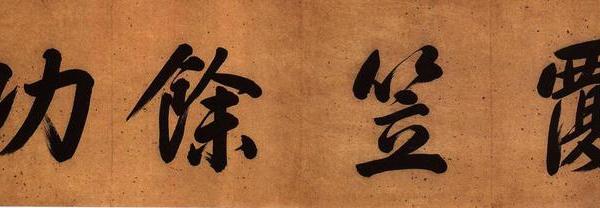 覆笠餘功